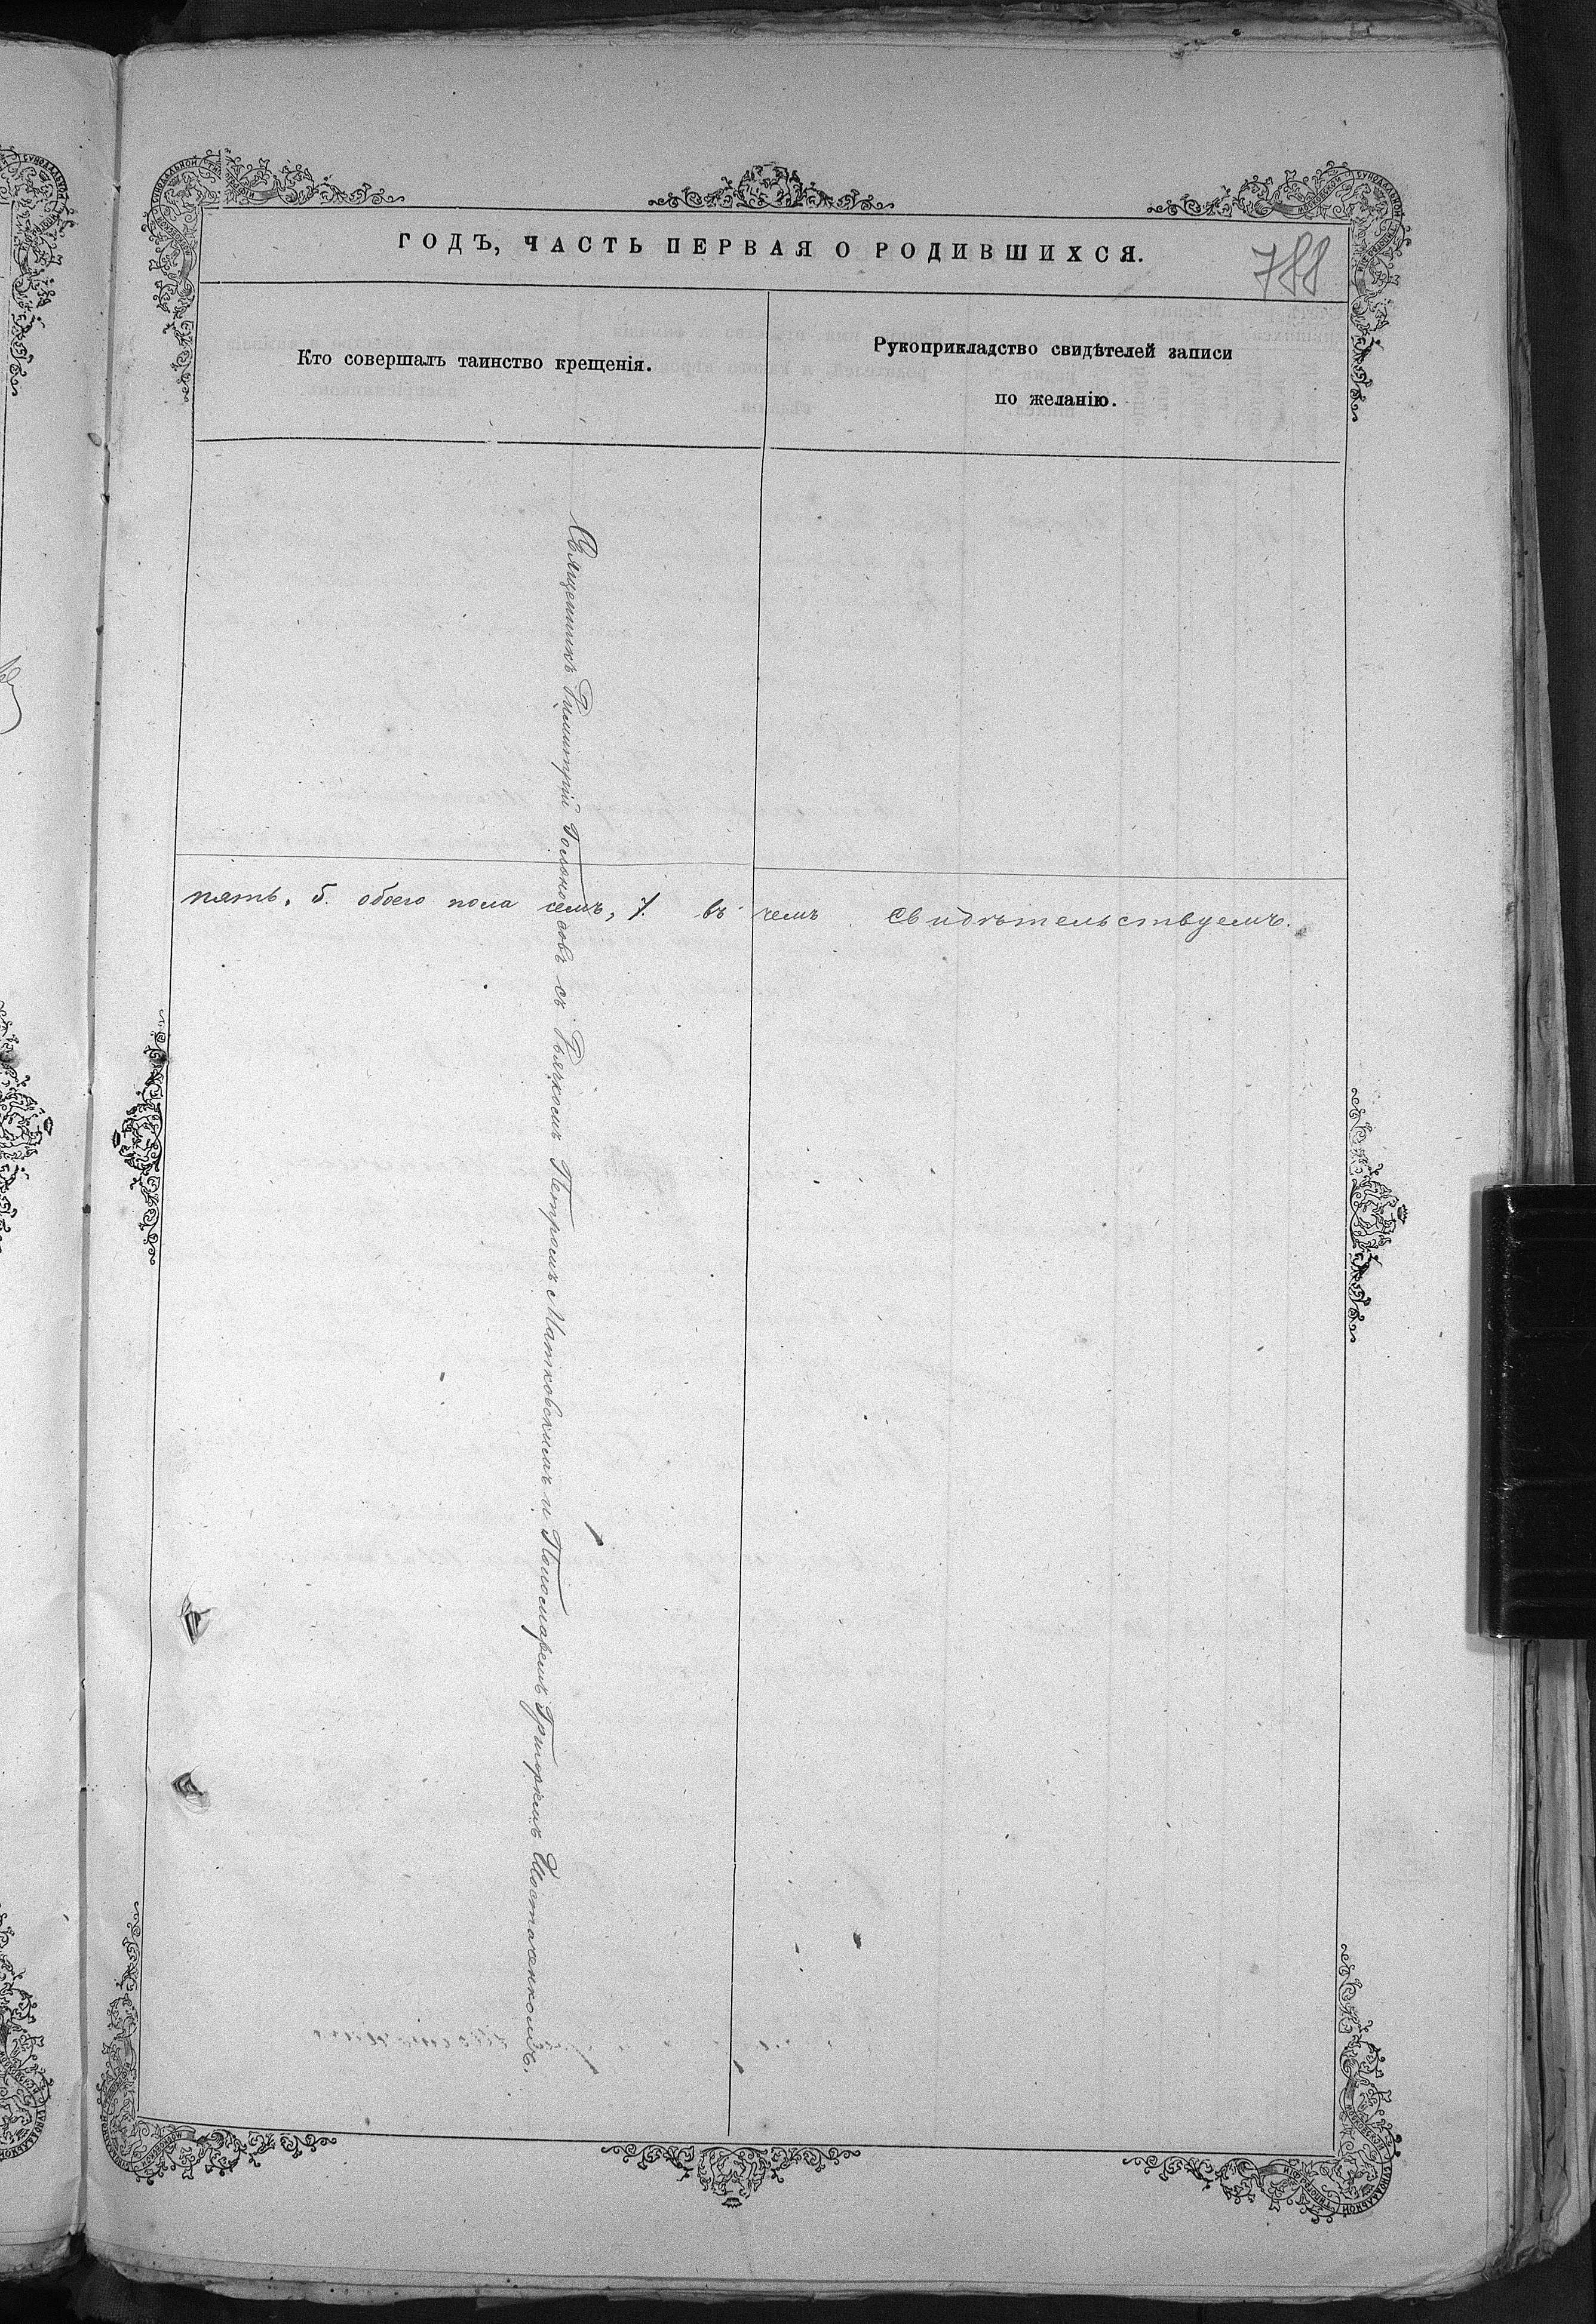 ГОДЪ, ЧАСТЬ ПЕРВАЯ О РОДИВШИХСЯ.
788
Кто совершалъ таинство крещенія.
Рукоприкладство свидѣтелей записи
по желанію.
Священникъ Димитрій Голоносовъ съ Дьячкомъ Петромъ Матковскимъ и Пономаремъ Григоріемъ Шостаченкомъ.
пять, 5. обоего пола семь, 7. въ чемъ свидѣтельствуемъ.